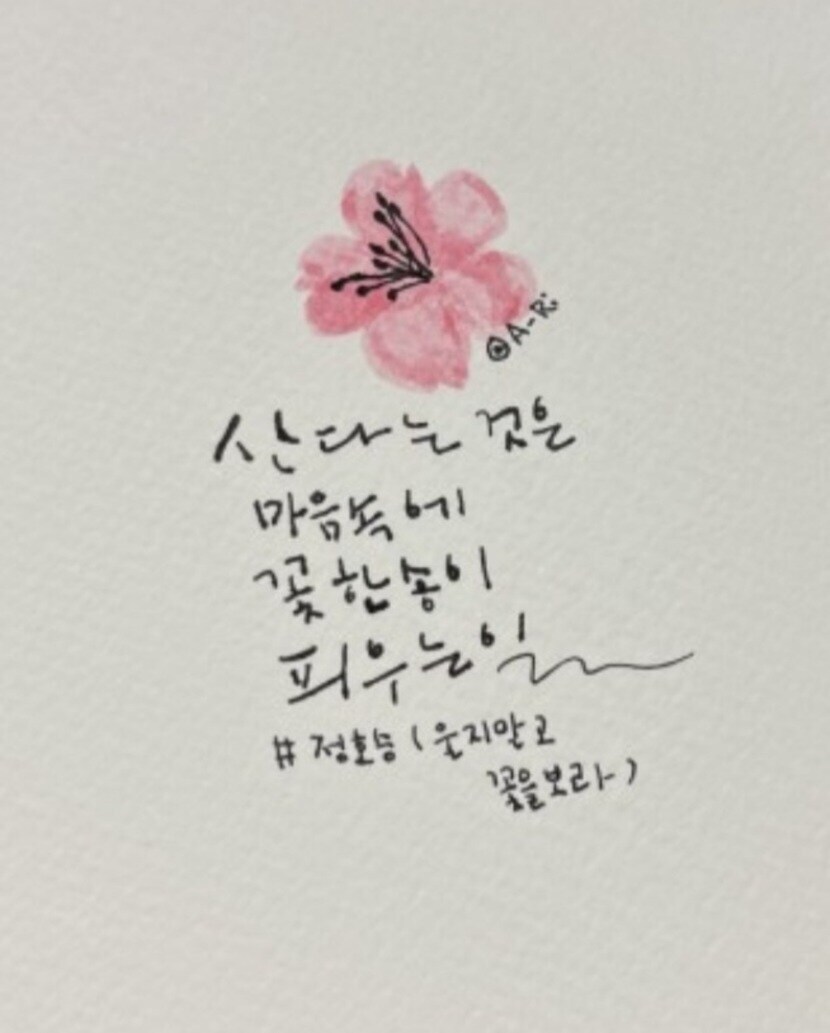 @A-Ri
산다는 것은
마음속에
꽃 한송이
피우는일
# 정호승 (울지말고
꽃을보라)